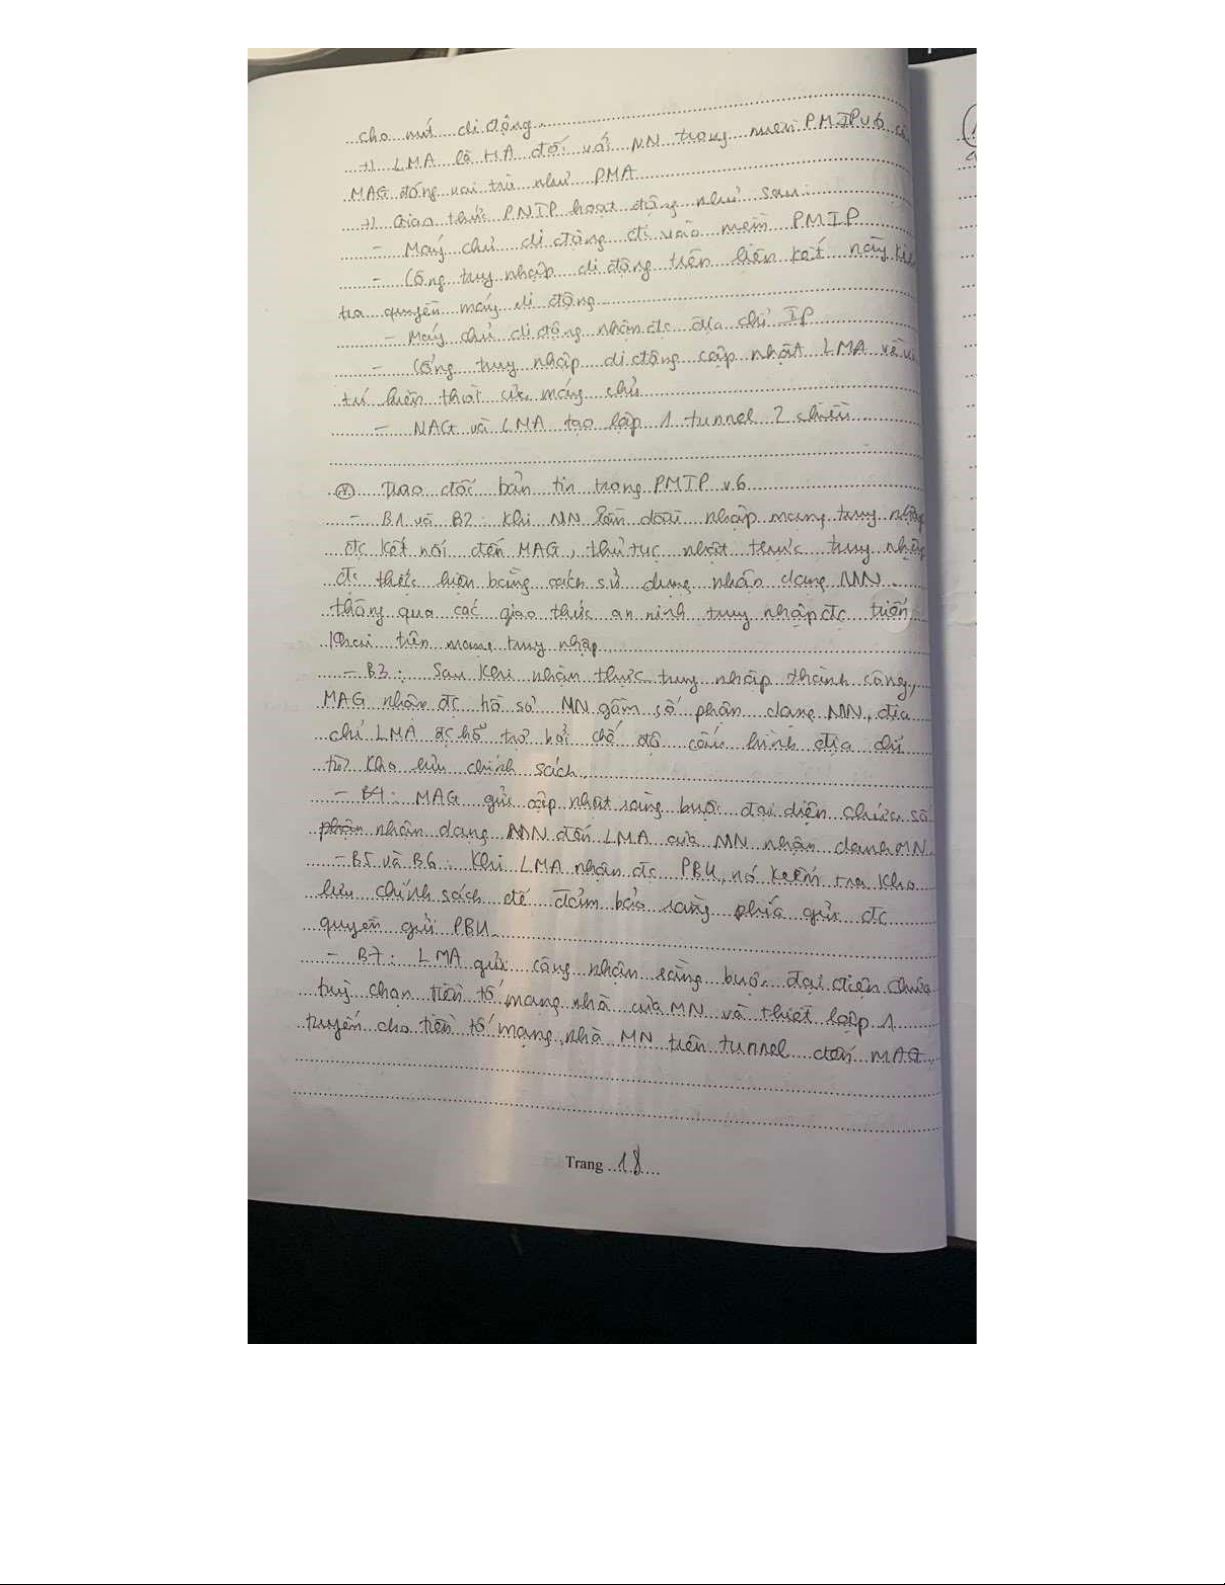 cho nút di động.
+) LMA là HA đối với MN trong miền PMIPv6 còn
MAG đóng vai trò như PMA
+) Giao thức PMIP hoạt động như sau:
- Máy chủ di động đi vào miền PMIP
- Cổng truy nhập di động trên liên kết này kiểm
tra quyền máy di động
- Máy chủ di động nhận đc địa chỉ IP
- Cổng truy nhập di động cập nhật LMA về vị
trí hiện thời của máy chủ
- MAG và LMA tạo lập 1 tunnel 2 chiều
Trao đổi bản tin trong PMIP v6
- B1 và B2: Khi MN lần đầu nhập mạng truy nhập
đc kết nối đến MAG, thủ tục nhật thực truy nhập
đc thực hiện bằng cách sử dụng nhận dạng MN
thông qua các giao thức an ninh truy nhập đc triển
khai trên mạng truy nhập.
- B3: Sau khi nhận thực truy nhập thành công,
MAG nhận đc hồ sơ MN gồm số phận dạng MN, địa
chỉ LMA đc hỗ trợ bởi chế độ cấu hình địa chỉ
từ kho lưu chính sách.
- B4: MAG gửi cập nhật ràng buộc đại diện chứa số
nhận dạng MN đến LMA của MN nhận danh MN.
- B5 và B6: Khi LMA nhận đc PBU, nó kiểm tra kho
lưu chính sách để đảm bảo rằng phía gửi đc
quyền gửi PBU.
- B7: LMA gửi công nhận ràng buộc đại diện chứa
tuỳ chọn tiền tố mạng nhà của MN và thiết lập 1
tuyến cho tiền tố mạng nhà MN trên tunnel đến MAG.
Trang 18